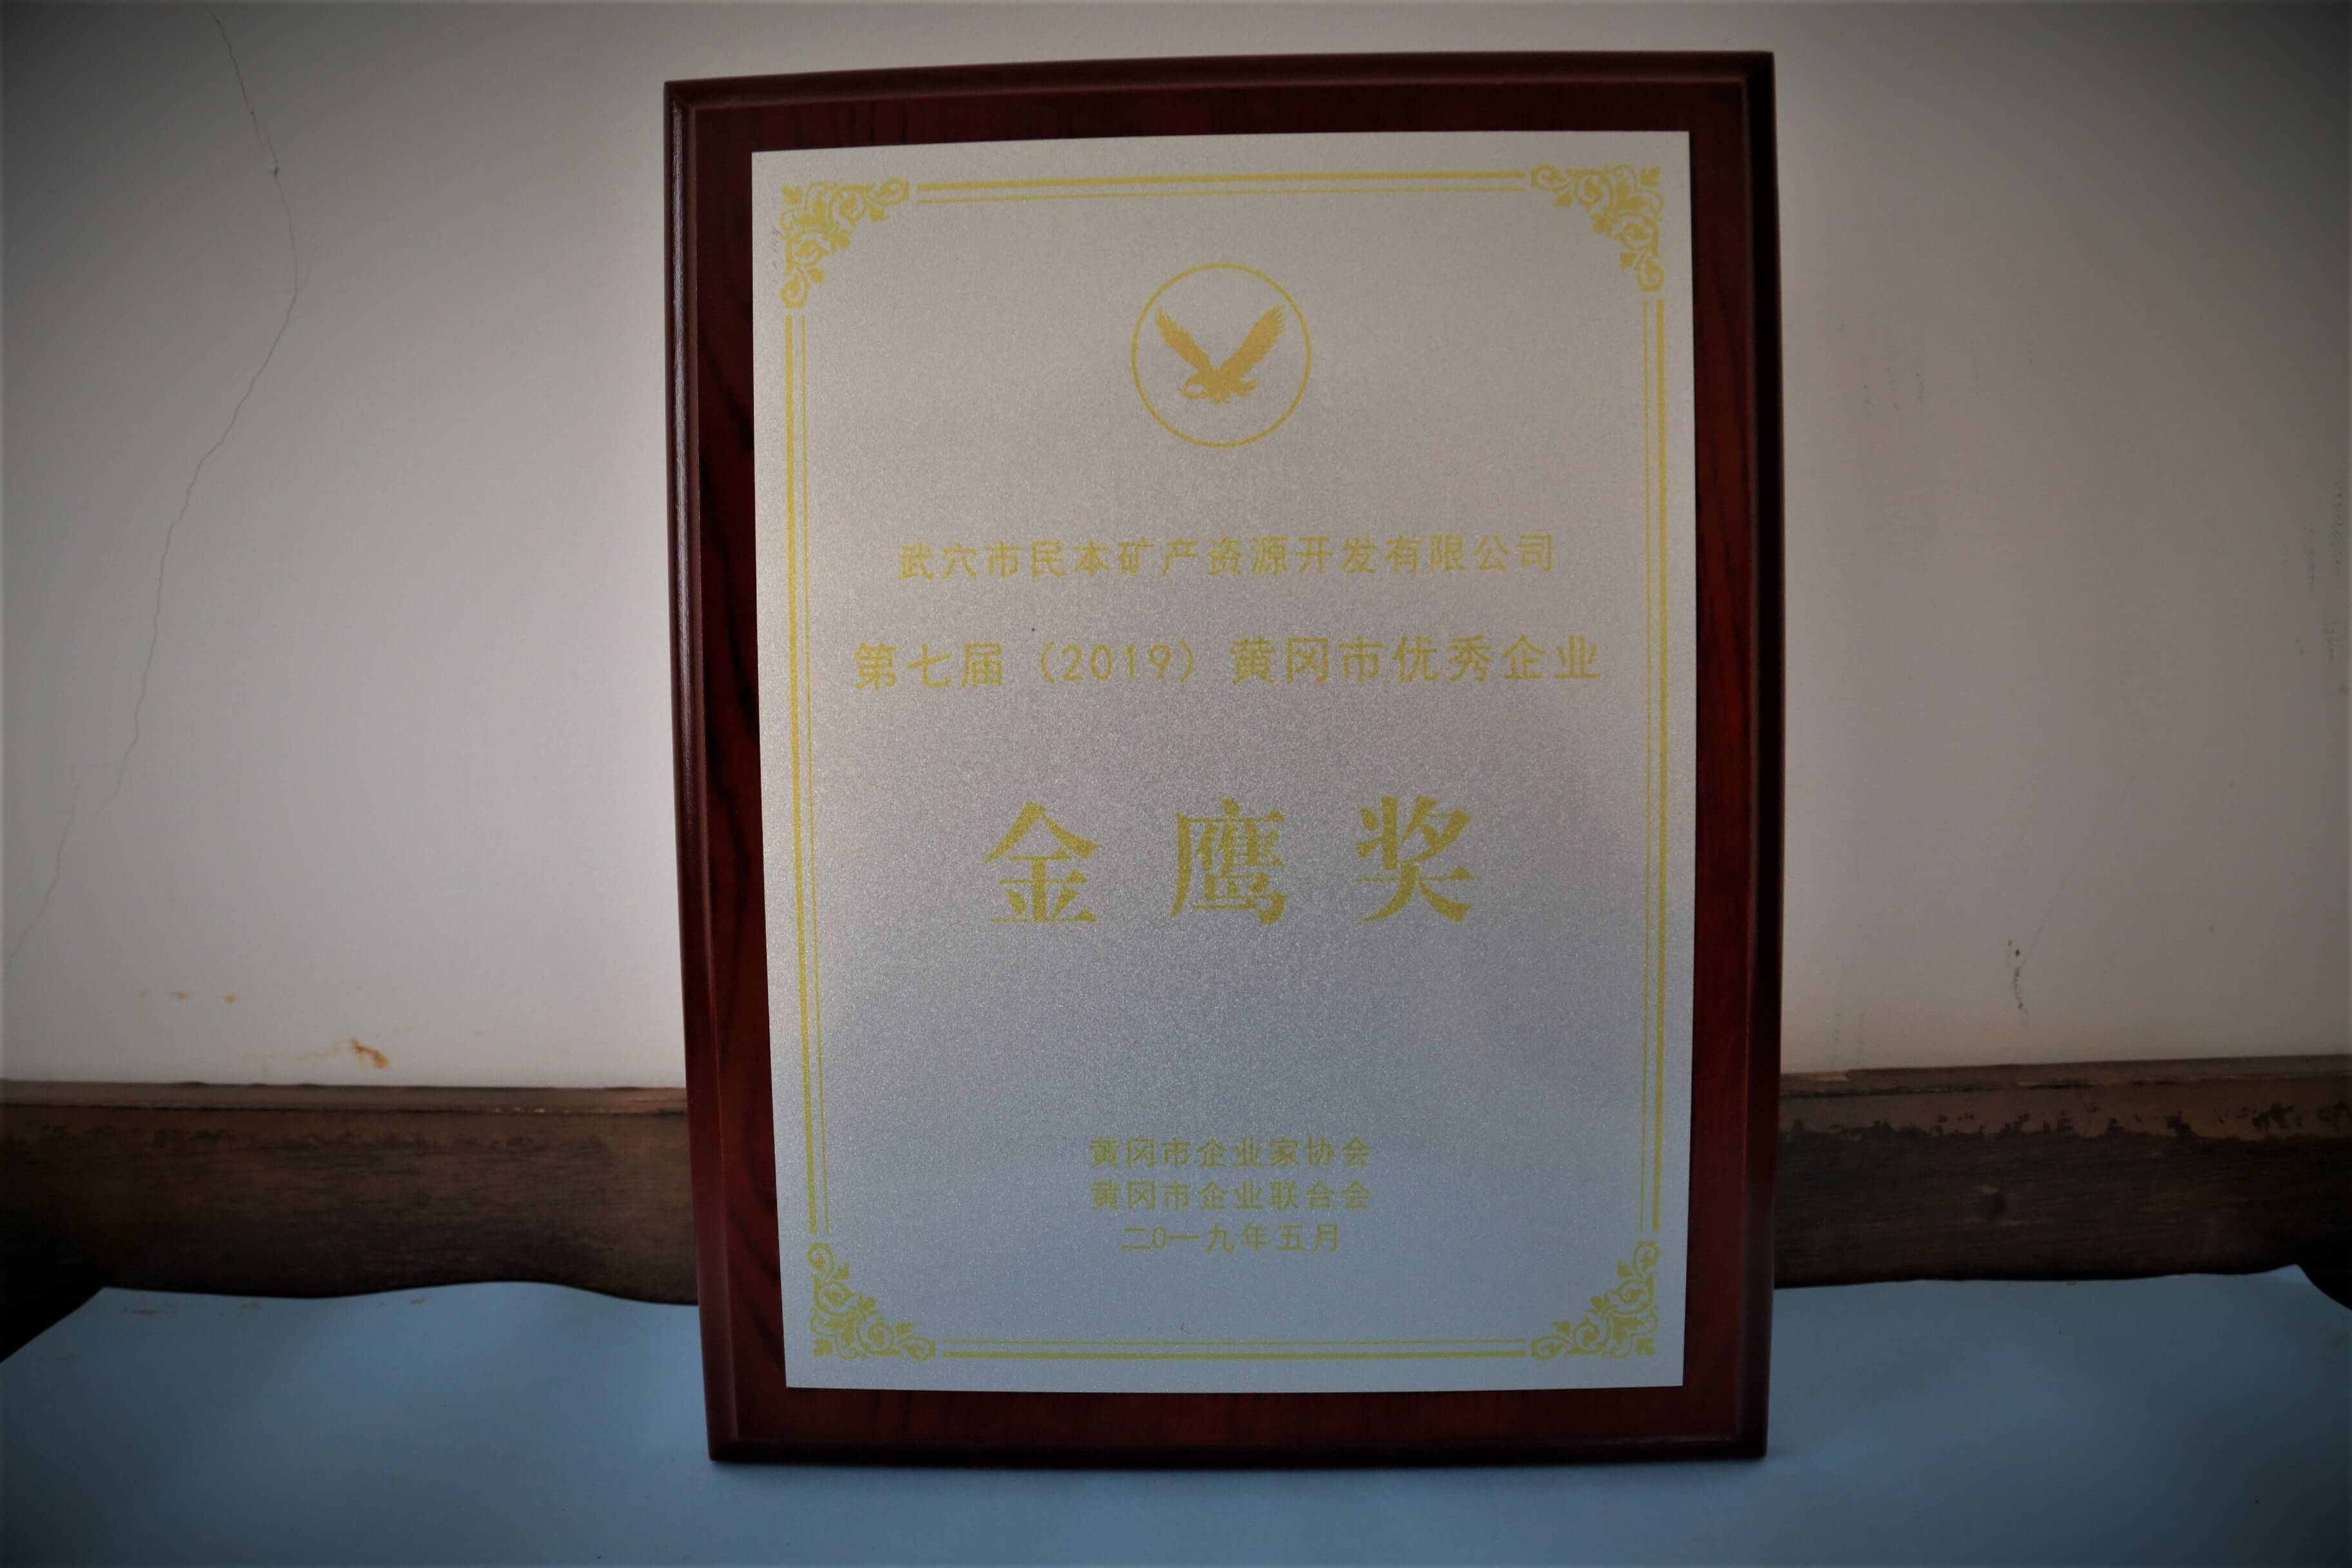 武穴市民本矿产资源开发有限公司
第七届（2019）黄冈市优秀企业
金鹰奖
黄冈市企业家协会
黄冈市企业联合会
二0一九年五月